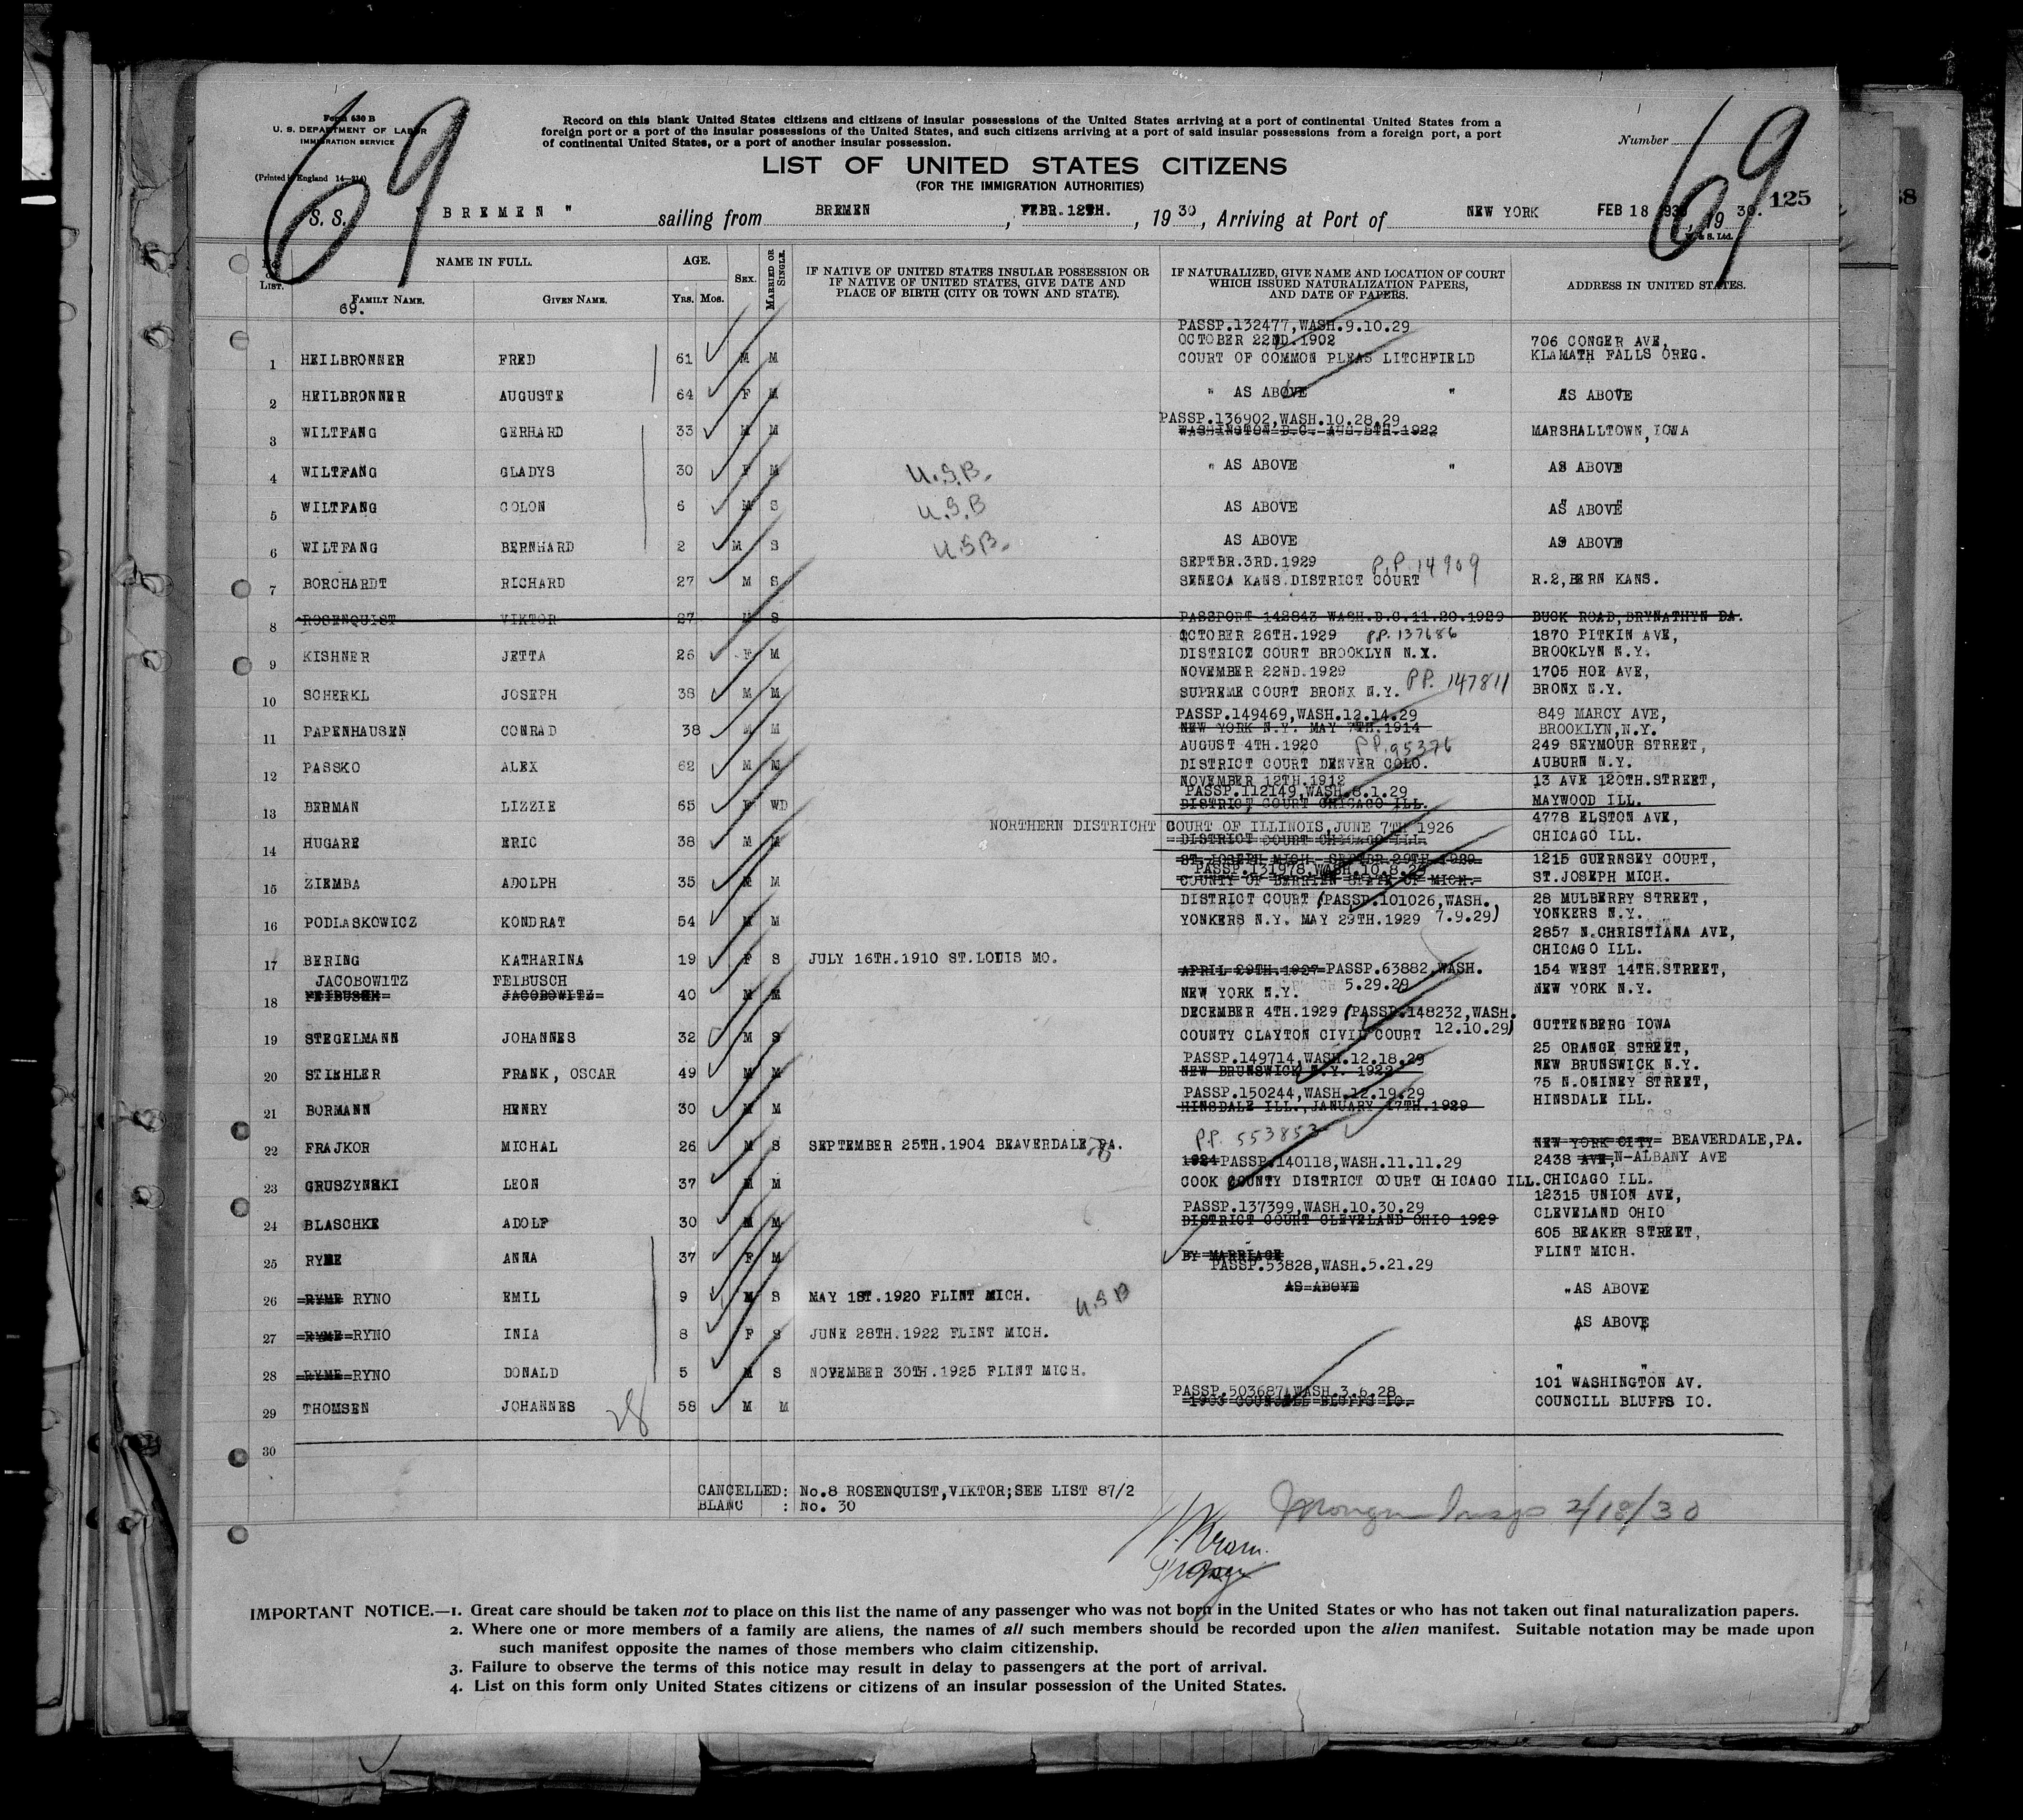 69
69
Form 630 B
U. S. DEPARTMENT OF LABOR
IMMIGRATION SERVICE
(Printed in England 14—214)
Record on this blank United States citizens and citizens of insular possessions of the United States arriving at a port of continental United States from a
foreign port or a port of the insular possessions of the United States, and such citizens arriving at a port of said insular possessions from a foreign port, a port
of continental United States, or a port of another insular possession.
Number
LIST OF UNITED STATES CITIZENS
(FOR THE IMMIGRATION AUTHORITIES)
125
S. S. " BREMEN " sailing from BREMEN, FEBR.12TH., 1930, Arriving at Port of NEW YORK FEB 18 1930, 1930.
No. on LIST. NAME IN FULL. AGE. SEX. MARRIED OR SINGLE. IF NATIVE OF UNITED STATES INSULAR POSSESSION OR IF NATIVE OF UNITED STATES, GIVE DATE AND PLACE OF BIRTH (CITY OR TOWN AND STATE). IF NATURALIZED, GIVE NAME AND LOCATION OF COURT WHICH ISSUED NATURALIZATION PAPERS, AND DATE OF PAPERS. ADDRESS IN UNITED STATES.
FAMILY NAME. GIVEN NAME. Yrs. Mos.
69.
PASSP.132477,WASH.9.10.29
OCTOBER 22ND.1902 706 CONGER AVE,
1 HEILBRONNER FRED 61 M M COURT OF COMMON PLEAS LITCHFIELD KLAMATH FALLS OREG.
2 HEILBRONNER AUGUSTE 64 F M " AS ABOVE " AS ABOVE
PASSP.136902,WASH.10.28.29
3 WILTFANG GERHARD 33 M M WASHINGTON D.C. AUG.5TH.1922 MARSHALLTOWN,IOWA
4 WILTFANG GLADYS 30 F M U.S.B. " AS ABOVE " AS ABOVE
5 WILTFANG COLON 6 M S U.S.B AS ABOVE AS ABOVE
6 WILTFANG BERNHARD 2 M S U.S.B. AS ABOVE AS ABOVE
SEPTBR.3RD.1929 P.P. 14909
7 BORCHARDT RICHARD 27 M S SENECA KANS.DISTRICT COURT R.2,BERN KANS.
8 ROSENQUIST VIKTOR 27 M S PASSPORT 142843 WASH.D.C.11.20.1929 BUCK ROAD,BRYNATHYN PA.
OCTOBER 26TH.1929 P.P. 137686 1870 PITKIN AVE,
9 KISHNER JETTA 26 F M DISTRICT COURT BROOKLYN N.Y. BROOKLYN N.Y.
NOVEMBER 22ND.1929 1705 HOE AVE,
10 SCHERKL JOSEPH 38 M M SUPREME COURT BRONX N.Y. P.P. 147811 BRONX N.Y.
PASSP.149469,WASH.12.14.29 849 MARCY AVE,
11 PAPENHAUSEN CONRAD 38 M M NEW YORK N.Y. MAY 7TH.1914 BROOKLYN,N.Y.
AUGUST 4TH.1920 P.P. 95376 249 SEYMOUR STREET,
12 PASSKO ALEX 62 M M DISTRICT COURT DENVER COLO. AUBURN N.Y.
NOVEMBER 12TH.1912 13 AVE 120TH.STREET,
PASSP.112149,WASH.8.1.29
13 BERMAN LIZZIE 65 F WD DISTRICT COURT CHICAGO ILL. MAYWOOD ILL.
NORTHERN DISTRICHT COURT OF ILLINOIS,JUNE 7TH 1926 4778 ELSTON AVE,
14 HUGARE ERIC 38 M M DISTRICT COURT CHICAGO ILL. CHICAGO ILL.
ST.JOSEPH MICH. SEPTBR.29TH.1929 1215 GUERNSEY COURT,
PASSP.131978,WASH.10.8.29
15 ZIEMBA ADOLPH 35 M M COUNTY OF BERRIEN STATE OF MICH. ST.JOSEPH MICH.
DISTRICT COURT (PASSP.101026,WASH. 28 MULBERRY STREET,
16 PODLASKOWICZ KONDRAT 54 M M YONKERS N.Y. MAY 29TH.1929 7.9.29) YONKERS N.Y.
2857 N.CHRISTIANA AVE,
17 BERING KATHARINA 19 F S JULY 16TH.1910 ST.LOUIS MO. CHICAGO ILL.
JACOBOWITZ FEIBUSCH APRIL 29TH.1927 PASSP.63882,WASH. 154 WEST 14TH.STREET,
18 FEIBUSCH JACOBOWITZ 40 M M NEW YORK N.Y. 5.29.29 NEW YORK N.Y.
DECEMBER 4TH.1929 (PASSP.148232,WASH.
19 STEGELMANN JOHANNES 32 M S COUNTY CLAYTON CIVIL COURT 12.10.29) GUTTENBERG IOWA
PASSP.149714,WASH.12.18.29 25 ORANGE STREET,
20 STIEHLER FRANK, OSCAR 49 M M NEW BRUNSWICK N.Y. 1922 NEW BRUNSWICK N.Y.
PASSP.150244,WASH.12.19.29 75 N.ONINEY STREET,
21 BORMANN HENRY 30 M M HINSDALE ILL.,JANUARY 17TH.1929 HINSDALE ILL.
22 FRAJKOR MICHAL 26 M S SEPTEMBER 25TH.1904 BEAVERDALE,PA. P.P. 553853 NEW YORK CITY BEAVERDALE,PA.
1924 PASSP.140118,WASH.11.11.29 2438 AVE,N-ALBANY AVE
23 GRUSZYNSKI LEON 37 M M COOK COUNTY DISTRICT COURT CHICAGO ILL. CHICAGO ILL.
PASSP.137399,WASH.10.30.29 12315 UNION AVE,
24 BLASCHKE ADOLF 30 M M DISTRICT COURT CLEVELAND OHIO 1929 CLEVELAND OHIO
605 BEAKER STREET,
25 RYME ANNA 37 F M BY MARRIAGE FLINT MICH.
PASSP.53828,WASH.5.21.29
26 RYME RYNO EMIL 9 M S MAY 1ST.1920 FLINT MICH. U.S.B AS ABOVE "AS ABOVE
27 RYME RYNO INIA 8 F S JUNE 28TH.1922 FLINT MICH. AS ABOVE
28 RYME RYNO DONALD 5 M S NOVEMBER 30TH.1925 FLINT MICH. " "
PASSP.503687,WASH.3.6.28 101 WASHINGTON AV.
29 THOMSEN JOHANNES 58 M M 1903 COUNCILL BLUFFS IO. COUNCILL BLUFFS IO.
28
30
CANCELLED: No.8 ROSENQUIST,VIKTOR;SEE LIST 87/2
BLANC : No. 30
2/18/30
IMPORTANT NOTICE.—1. Great care should be taken not to place on this list the name of any passenger who was not born in the United States or who has not taken out final naturalization papers.
2. Where one or more members of a family are aliens, the names of all such members should be recorded upon the alien manifest. Suitable notation may be made upon
such manifest opposite the names of those members who claim citizenship.
3. Failure to observe the terms of this notice may result in delay to passengers at the port of arrival.
4. List on this form only United States citizens or citizens of an insular possession of the United States.